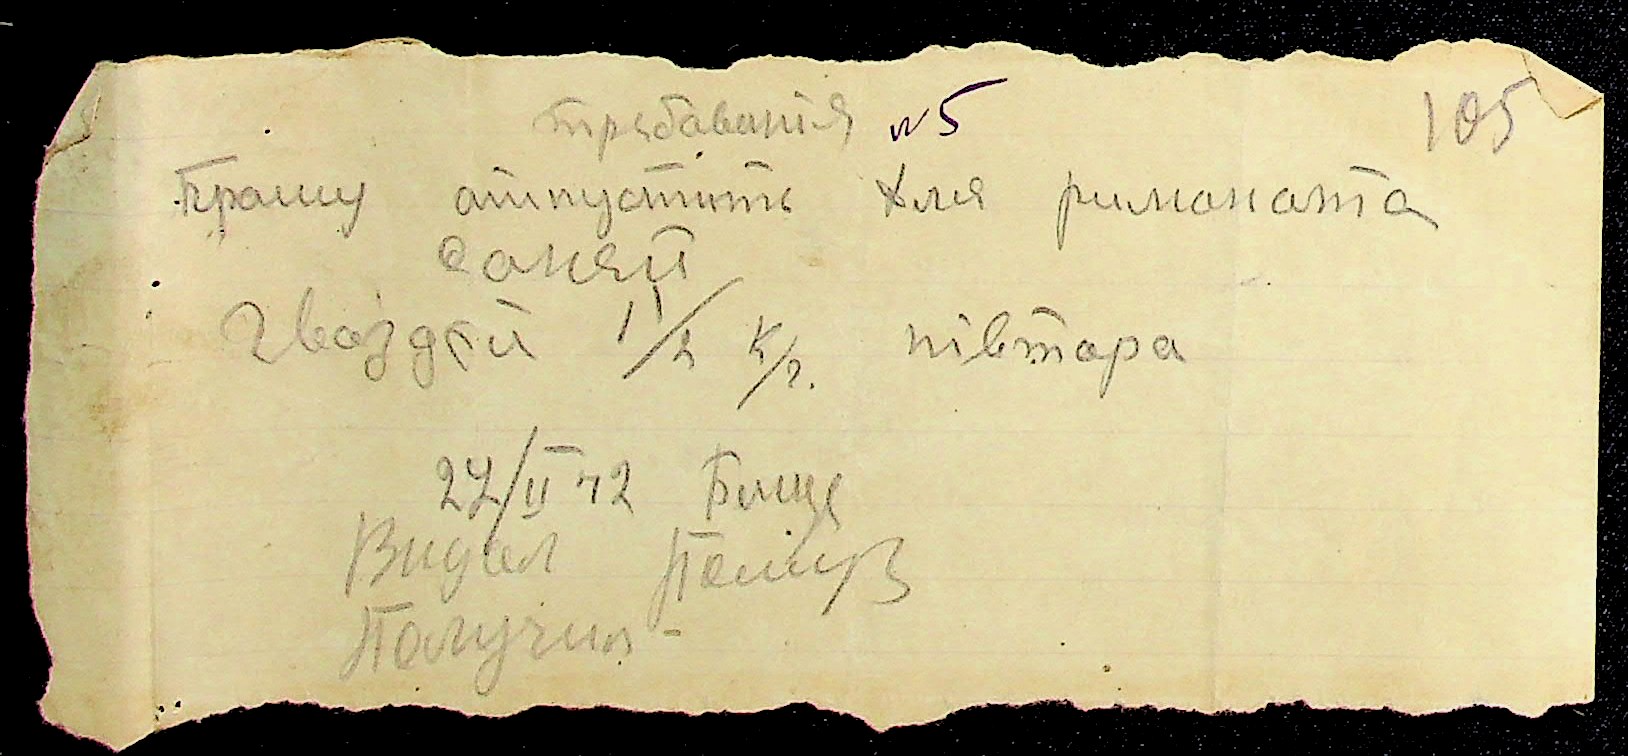 требаваніія №5 105
Прашу атпустить для римоната
саняй
Гваздей 1 1/2 к/г. півтара
27/II 42
Видал
Палучил -